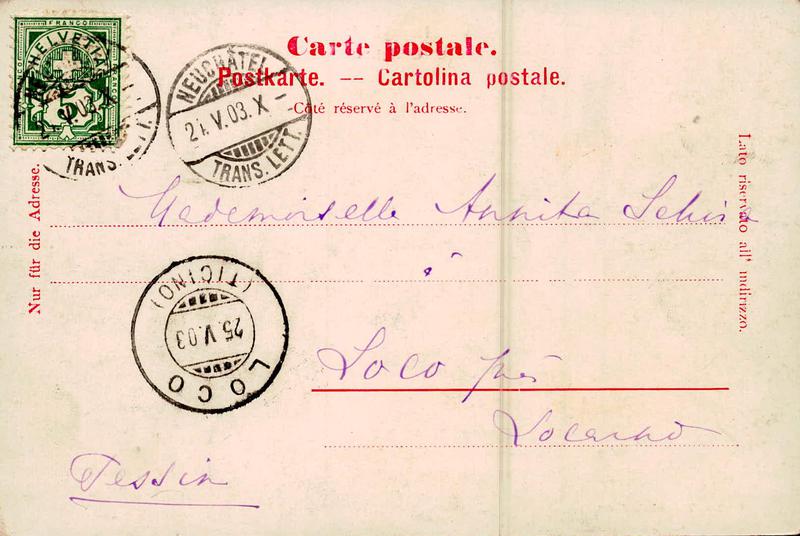 FRANCO
HELVETIA
5
TRANS. LETT.
NEUCHÂTEL
TRANS. LETT.
Carte postale.
Postkarte. -- Cartolina postale.
Côté réservé à l'adresse.
Nur für die Adresse.
Lato riservato all' indirizzo.
Mademoiselle Annita
à
(TICINO)
25.V.03
LOCO
Loco près
Locarno
Tessin